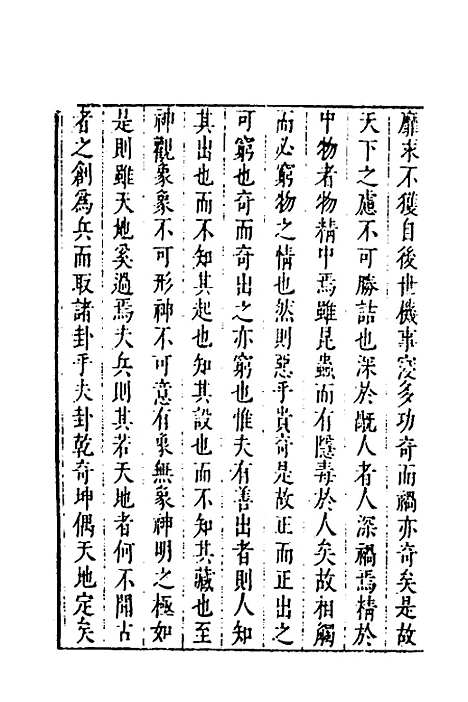 靡求不獲自後世機事寖多功奇而禍亦奇矣是故
天下之慮不可勝詰也深於戕人者人深禍焉精於
中物者物精中焉雖昆蟲而有隱毒於人矣故相觸
而必窮物之情也然則惡乎貴奇是故正而正出之
可窮也奇而奇出之亦窮也惟夫有善出者則人知
其出也而不知其起也知其設也而不知其藏也至
神觀象象不可形神不可意有象無象神明之極如
是則雖天地奚過焉夫兵則其若天地者何不聞古
者之創爲兵而取諸卦乎夫卦乾奇坤偶天地定矣